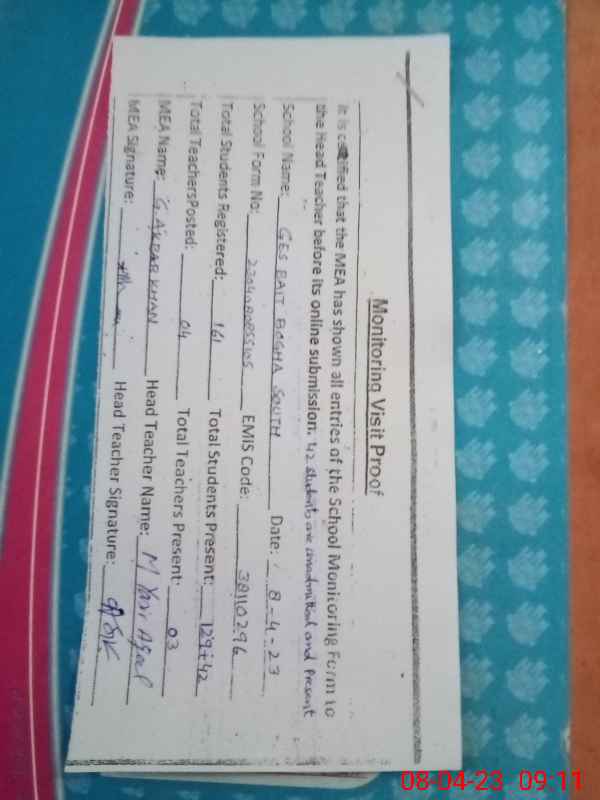 Monitoring Visit Proof
It is certified that the MEA has shown all entries of the School Monitoring Form to
the Head Teacher before its online submission. 42 students are unadmitted and present
School Name: GES BAIT BOGHA SOUTH Date: 8-4-23
School Form No: EMIS Code: 38110296
Total Students Registered: 161 Total Students Present: 129+42
Total TeachersPosted: 04 Total Teachers Present: 03
MEA Name: G.AKBAR KHAN Head Teacher Name: M Yasir Afzal
MEA Signature: Head Teacher Signature:
08-04-23 09:11